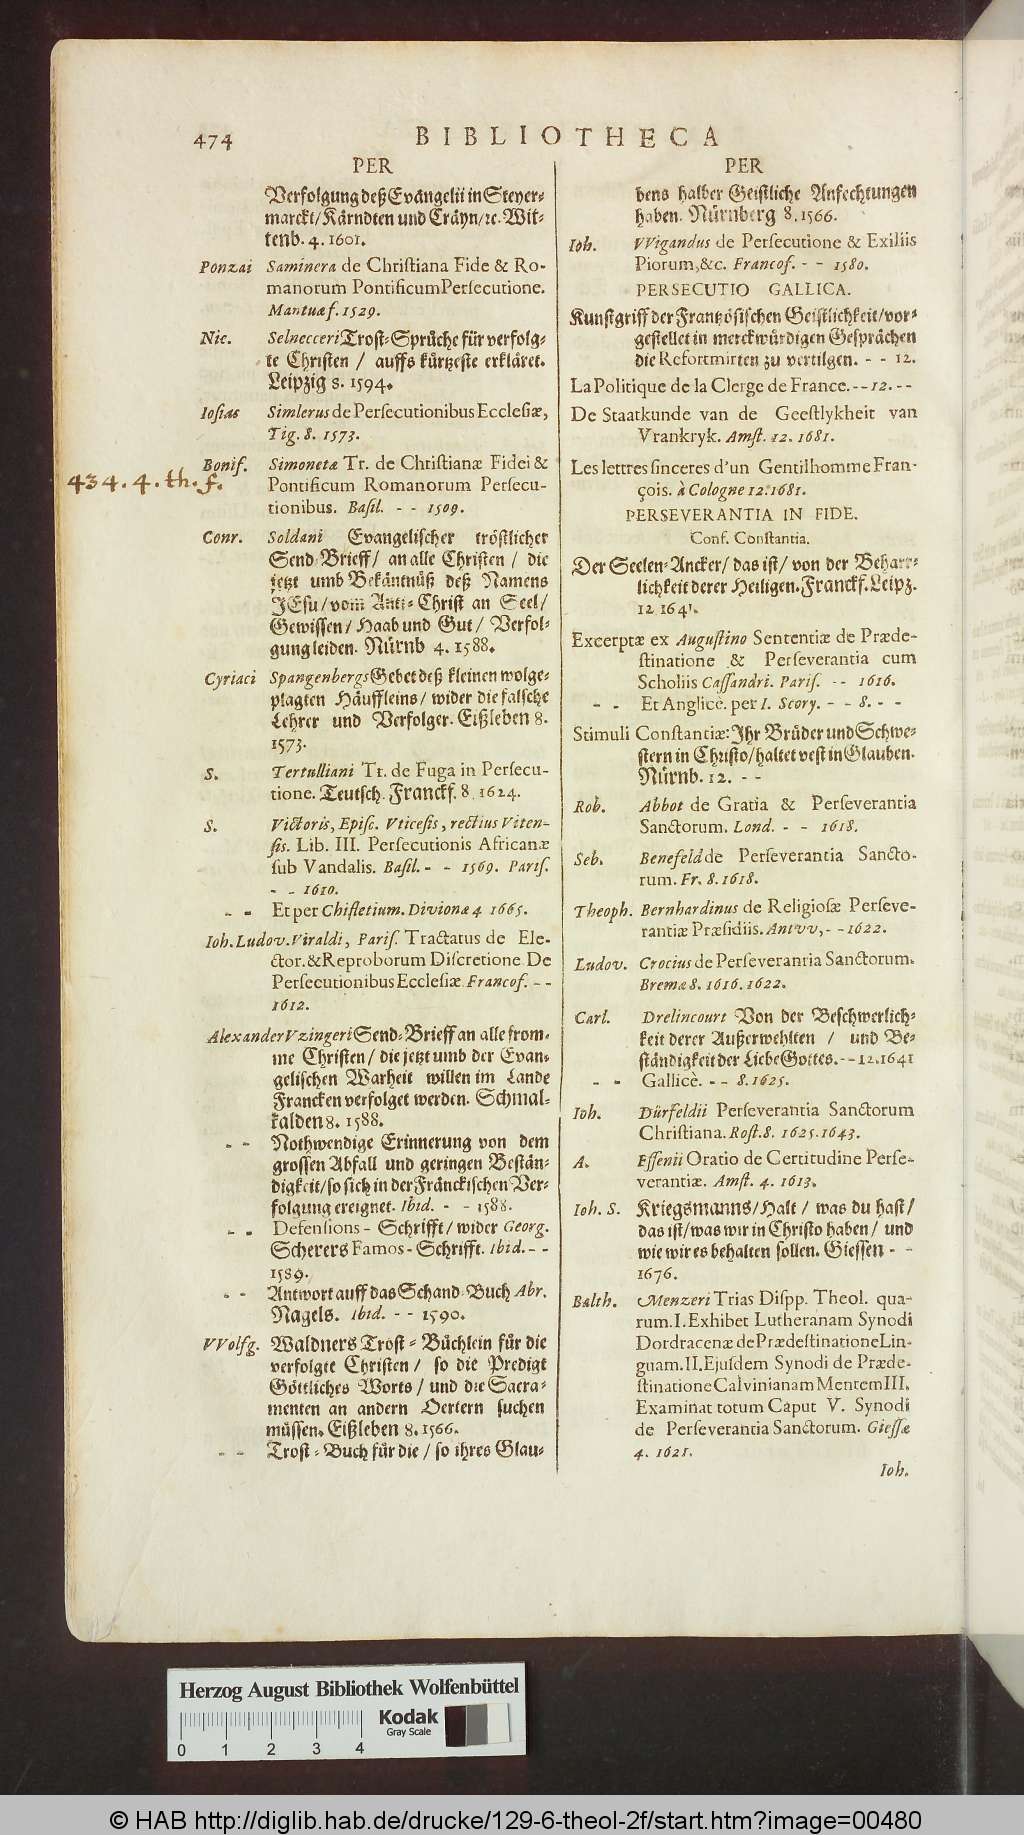 474
BIBLIOTHECA
PER
Verfolgung deß Evangelii in Steyer-
marckt/ Kärndten und Cräyn/ ꝛc. Wit-
tenb. 4. 1601.
Ponzai Saminera de Chriſtiana Fide & Ro-
manorum Pontificum Perſecutione.
Mantuæ f. 1529.
Nic. Selnecceri Troſt-Sprüche für verfolg-
te Chriſten / auffs kürtzeſte erkläret.
Leipzig 8. 1594.
Ioſias Simlerus de Perſecutionibus Eccleſiæ,
Tig. 8. 1573.
Bonif. Simonetæ Tr. de Chriſtianæ Fidei &
434. 4. th. f.
Pontificum Romanorum Perſecu-
tionibus. Baſil. - - 1509.
Conr. Soldani Evangeliſcher tröſtlicher
Send-Brieff/ an alle Chriſten / die
jetzt umb Bekäntnüß deß Namens
JEſu/ vom Anti-Chriſt an Seel/
Gewiſſen/ Haab und Gut/ Verfol-
gung leiden. Nürnb 4. 1588.
Cyriaci Spangenbergs Gebet deß kleinen wolge-
plagten Häuffleins/ wider die falſche
Lehrer und Verfolger. Eißleben 8.
1573.
S. Tertulliani Tr. de Fuga in Perſecu-
tione. Teutſch. Franckf. 8. 1624.
S. Victoris, Epiſc. Vticeſis, rectius Viten-
ſis. Lib. III. Perſecutionis Africanæ
ſub Vandalis. Baſil. - - 1569. Pariſ.
- - 1610.
- - Et per Chifletium. Divionæ 4 1665.
Ioh. Ludov. Viraldi, Pariſ. Tractatus de Ele-
ctor. & Reproborum Diſcretione De
Perſecutionibus Eccleſiæ. Francof. - -
1612.
Alexander Vzingeri Send-Brieff an alle from-
me Chriſten/ die jetzt umb der Evan-
geliſchen Warheit willen im Lande
Francken verfolget werden. Schmal-
kalden 8. 1588.
- - Nothwendige Erinnerung von dem
groſſen Abfall und geringen Beſtän-
digkeit/ ſo ſich in der Fränckiſchen Ver-
folgung ereignet. Ibid. - - 1588.
- - Defenſions-Schrifft/ wider Georg.
Scherers Famos-Schrifft. Ibid. - -
1589.
- - Antwort auff das Schand-Buch Abr.
Nagels. Ibid. - - 1590.
VVolfg. Waldners Troſt-Büchlein für die
verfolgte Chriſten/ ſo die Predigt
Göttliches Worts/ und die Sacra-
menten an andern Oertern ſuchen
müſſen. Eißleben 8. 1566.
- - Troſt-Buch für die/ ſo ihres Glau-
PER
bens halber Geiſtliche Anfechtungen
haben. Nürnberg 8. 1566.
Ioh. VVigandus de Perſecutione & Exiliis
Piorum, &c. Francof. - - 1580.
PERSECUTIO GALLICA.
Kunſtgriff der Frantzöſiſchen Geiſtlichkeit/ vor-
geſtellet in merckwürdigen Geſprächen
die Reformirten zu vertilgen. - - 12.
La Politique de la Clerge de France. - - 12. - -
De Staatkunde van de Geeſtlykheit van
Vrankryk. Amſt. 12. 1681.
Les lettres ſinceres d'un Gentilhomme Fran-
çois. à Cologne 12. 1681.
PERSEVERANTIA IN FIDE.
Conf. Conſtantia.
Der Seelen-Ancker/ das iſt/ von der Beharr-
lichkeit derer Heiligen. Franckf. Leipz.
12 1641.
Excerptæ ex Auguſtino Sententiæ de Præde-
ſtinatione & Perſeverantia cum
Scholiis Caſſandri. Pariſ. - - 1616.
- - Et Anglicè. per I. Scory. - - 8. - -
Stimuli Conſtantiæ: Ihr Brüder und Schwe-
ſtern in Chriſto/ haltet veſt in Glauben.
Nürnb. 12. - -
Rob. Abbot de Gratia & Perſeverantia
Sanctorum. Lond. - - 1618.
Seb. Benefeld de Perſeverantia Sancto-
rum. Fr. 8. 1618.
Theoph. Bernhardinus de Religioſæ Perſeve-
rantiæ Præſidiis. Antvv, - - 1622.
Ludov. Crocius de Perſeverantia Sanctorum.
Bremæ 8. 1616. 1622.
Carl. Drelincourt Von der Beſchwerlich-
keit derer Außerwehlten / und Be-
ſtändigkeit der Liebe Gottes. - - 12. 1641
- - Gallicè. - - 8. 1625.
Ioh. Dürfeldii Perſeverantia Sanctorum
Chriſtiana. Roſt. 8. 1625. 1643.
A. Eſſenii Oratio de Certitudine Perſe-
verantiæ. Amſt. 4. 1613.
Ioh. S. Kriegsmanns/ Halt / was du haſt/
das iſt/ was wir in Chriſto haben/ und
wie wir es behalten ſollen. Gieſſen - -
1676.
Balth. Menzeri Trias Diſpp. Theol. qua-
rum. I. Exhibet Lutheranam Synodi
Dordracenæ de Prædeſtinatione Lin-
guam. II. Ejuſdem Synodi de Præde-
ſtinatione Calvinianam Mentem III.
Examinat totum Caput V. Synodi
de Perſeverantia Sanctorum. Gieſſæ
4. 1621.
Ioh.
Herzog August Bibliothek Wolfenbüttel
Kodak
Gray Scale
0 1 2 3 4
© HAB http://diglib.hab.de/drucke/129-6-theol-2f/start.htm?image=00480